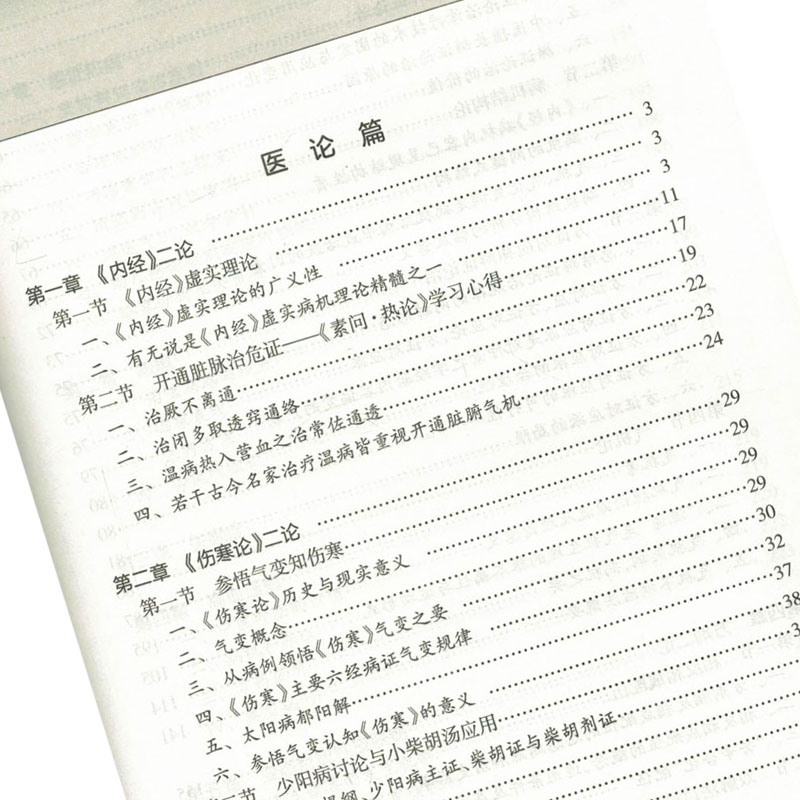 医论篇
第一章 《内经》二论 …… 3
第一节 《内经》虚实理论 …… 3
一、《内经》虚实理论的广义性 …… 3
二、有无说是《内经》虚实病机理论精髓之一 …… 11
第二节 开通脏脉治危证——《素问·热论》学习心得 …… 17
一、治厥不离通 …… 19
二、治闭多取透窍通络 …… 22
三、温病热入营血之治常佐通透 …… 23
四、若干古今名家治疗温病皆重视开通脏腑气机 …… 24
第二章 《伤寒论》二论 …… 29
第一节 参悟气变知伤寒 …… 29
一、《伤寒论》历史与现实意义 …… 29
二、气变概念 …… 29
三、从病例领悟《伤寒》气变之要 …… 30
四、《伤寒》主要六经病证气变规律 …… 32
五、太阳病郁阳解 …… 37
六、参悟气变认知《伤寒》的意义 …… 38
节 少阳病讨论与小柴胡汤应用 …… 3
提纲、少阳病主证、柴胡证与柴胡剂证